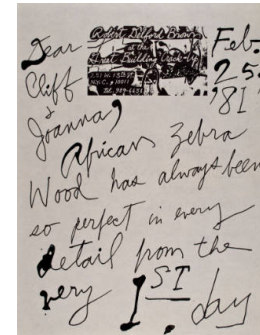 Dear
Cliff
&
Joanna,
Robert Delford Brown
at the
Great Building Crack-Up
251 W. 13th ST.
N.Y.C., 10011
Feb.
25
'81
African Zebra
Wood has always been
so perfect in every
detail from the
very 1ST day